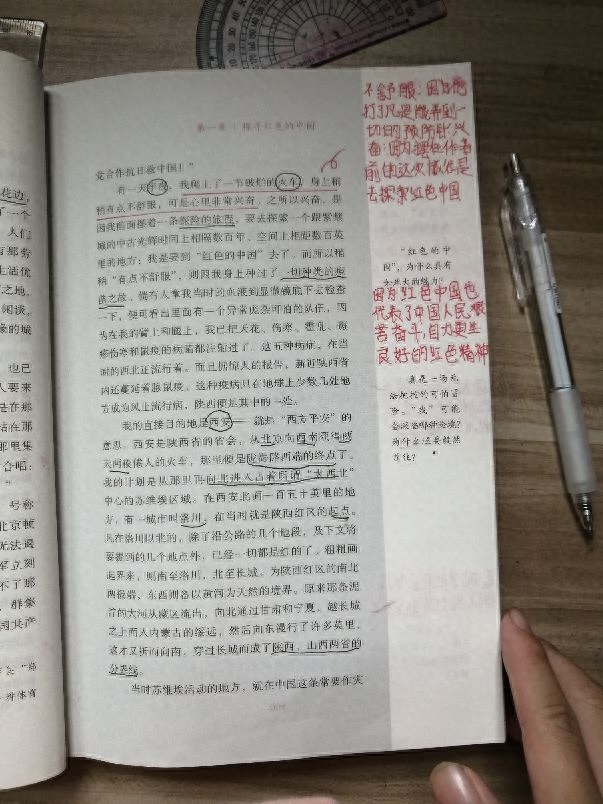 第一章 | 探寻红色的中国
党合作抗日救中国！”
有一天半夜，我爬上了一节破烂的火车，身上稍
稍有点不舒服，可是心里非常兴奋。之所以兴奋，是
因我前面摆着一条探险的旅程，要去探索一个跟紫禁
城的中古光辉时间上相隔数百年、空间上相距数百英
里的地方：我是要到“红色的中国”去了。而所以稍
稍“有点不舒服”，则因我身上种过了一切种类的疫
苗之故。倘有人拿我当时的血液到显微镜底下去检查
一下，便可看出里面有一个异常庞杂可怕的队伍，因
为在我的臂上和腿上，我已把天花、伤寒、霍乱、斑
疹伤寒和鼠疫的病菌都注射过了。这五种病症，在当
时的西北正流行着。而且据惊人的报告，新近陕西省
内还蔓延着腺鼠疫，这种疫病只在地球上少数几处地
方成为风土流行病，陕西便是其中的一处。
我的直接目的地是西安——就是“西方平安”的
意思。西安是陕西省的省会，从北京向西南须得
天两夜倦人的火车，那里便是陇海路西端的终点了。
我的计划是从那里再向北进入占着所谓“大西北”
中心的苏维埃区域。在西安北面一百五十英里的地
方，有一城市叫洛川，在当时就是陕西红区的起点。
凡在洛川以北的，除了沿公路的几个地段，及下文将
要提到的几个地点外，已经一切都是红的了。粗粗画
起界来，则南至洛川，北至长城，为陕西红区的南北
两极端，东西则各以黄河为天然的境界。原来那条泥
浊的大河从藏区流出，向北通过甘肃和宁夏，越长城
之上而入内蒙古的绥远，然后向东漫行了许多英里，
这才又折而向南，穿过长城而成了陕西、山西两省的
分界线。
当时苏维埃活动的地方，就在中国这条常要作灾
不舒服：因为他
打了凡是能弄到一
切的预防针 兴
奋：因为摆在作者
前的这次旅程是
去探索红色中国
“红色的中
国”，为什么具有
因为红色中国也
代表了中国人民艰
苦奋斗,自力更生
良好的红色精神
真是一场充
险。“我”可能
会面临哪些危险？
为什么还要毅然
前往？
花边，
了一个
人们
有那旁
生活优
之地。
闲谈，
缘的城
也已
人要来
是在那
结在那
里集
合唱：
号称
北京顿
无法遏
军立刻
不了那
群集
国共产